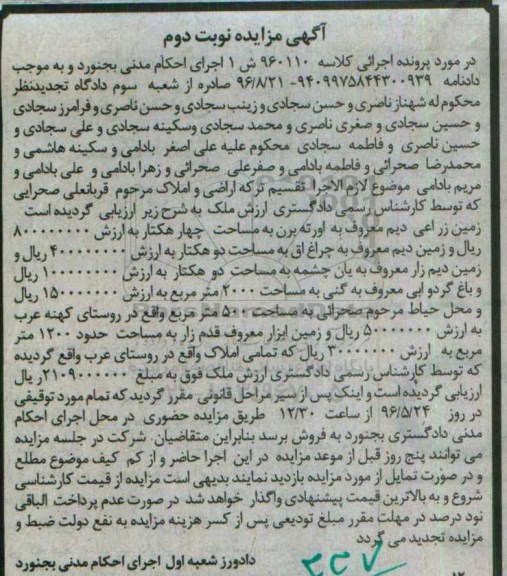 آگهی مزایده نوبت دوم
در مورد پرونده اجرائی کلاسه ۹۶۰۱۱۰ ش ۱ اجرای احکام مدنی بجنورد و به موجب
دادنامه ۹۴۰۹۹۷۵۸۴۴۳۰۰۹۳۹- ۹۶/۸/۲۱ صادره از شعبه سوم دادگاه تجدیدنظر
محکوم له شهناز ناصری و حسن سجادی و زینب سجادی و حسن ناصری و فرامرز سجادی
و حسین سجادی و صغری ناصری و محمد سجادی وسکینه سجادی و علی سجادی و
حسین ناصری و فاطمه سجادی محکوم علیه علی اصغر بادامی و سکینه هاشمی و
محمدرضا صحرائی و فاطمه بادامی و صفرعلی صحرائی و زهرا بادامی و علی بادامی و
مریم بادامی موضوع لازم الاجرا تقسیم ترکه اراضی و املاک مرحوم قربانعلی صحرایی
که توسط کارشناس رسمی دادگستری ارزش ملک به شرح زیر ارزیابی گردیده است
زمین زراعی دیم معروف به اورته پرن به مساحت چهار هکتار به ارزش ۸۰۰۰۰۰۰۰۰
ریال و زمین دیم معروف به چراغ اق به مساحت دو هکتار به ارزش ۴۰۰۰۰۰۰۰۰ ریال و
زمین دیم زار معروف به یان چشمه به مساحت دو هکتار به ارزش ۱۰۰۰۰۰۰۰۰ ریال
و باغ گردو ابی معروف به گنی به مساحت ۲۰۰۰ متر مربع به ارزش ۱۵۰۰۰۰۰۰۰ ریال
و محل حیاط مرحوم صحرائی به مساحت ۵۰۰ متر مربع واقع در روستای کهنه عرب
به ارزش ۵۰۰۰۰۰۰۰ ریال و زمین ابزار معروف قدم زار به مساحت حدود ۱۲۰۰ متر
مربع به ارزش ۳۰۰۰۰۰۰۰ ریال که تمامی املاک واقع در روستای عرب واقع گردیده
که توسط کارشناس رسمی دادگستری ارزش ملک فوق به مبلغ ۲۱۰۹۰۰۰۰۰۰ ریال
ارزیابی گردیده است و اینک پس از سیر مراحل قانونی مقرر گردید که تمام مورد توقیفی
در روز ۹۶/۵/۲۴ از ساعت ۱۲/۳۰ طریق مزایده حضوری در محل اجرای احکام
مدنی دادگستری بجنورد به فروش برسد بنابراین متقاضیان شرکت در جلسه مزایده
می توانند پنج روز قبل از موعد مزایده در این اجرا حاضر و از کم کیف موضوع مطلع
و در صورت تمایل از مورد مزایده بازدید نمایند بدیهی است مزایده از قیمت کارشناسی
شروع و به بالاترین قیمت پیشنهادی واگذار خواهد شد در صورت عدم پرداخت الباقی
نود درصد در مهلت مقرر مبلغ تودیعی پس از کسر هزینه مزایده به نفع دولت ضبط و
مزایده تجدید می گردد
دادورز شعبه اول اجرای احکام مدنی بجنورد